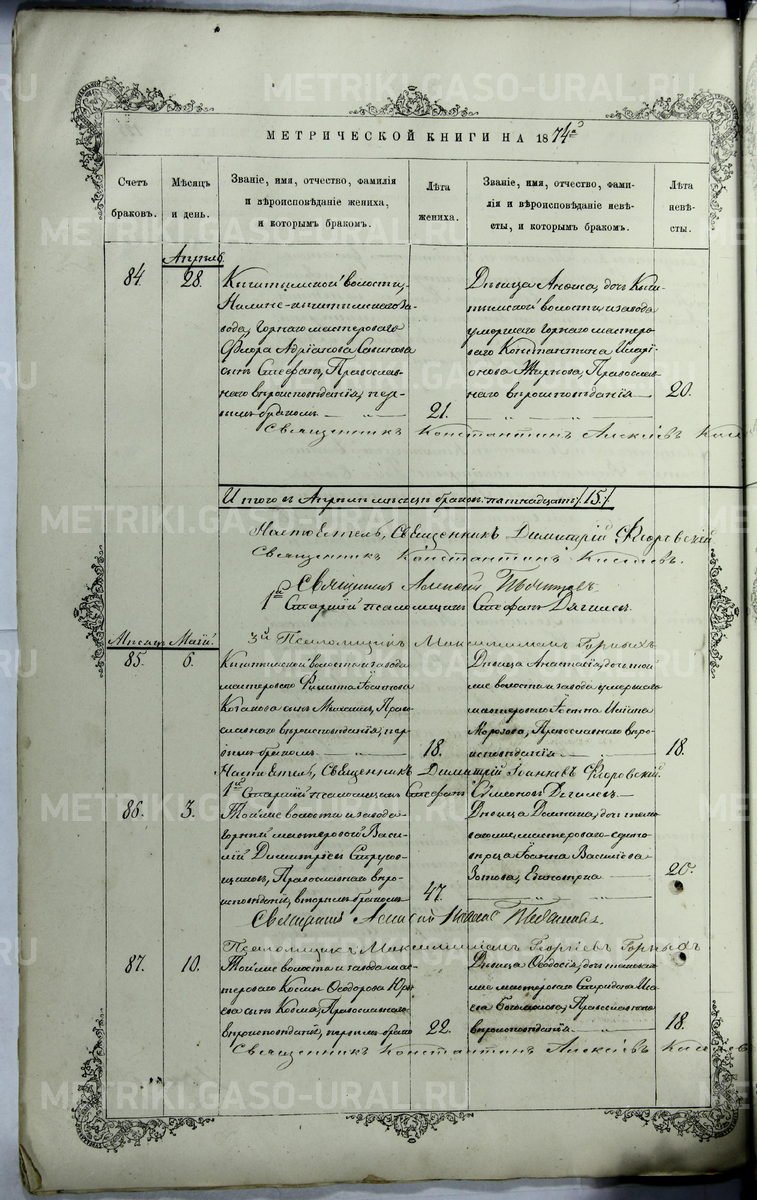 МЕТРИЧЕСКОЙ КНИГИ НА 1874
Счетъ
браковъ.
Мѣсяцъ
и день.
Званіе, имя, отчество, фамилія
и вѣроисповѣданіе жениха,
и которымъ бракомъ.
Лѣта
жениха.
Званіе, имя, отчество, фами-
лія и вѣроисповѣданіе невѣ-
сты, и которымъ бракомъ.
Лѣта
невѣ-
сты.
Апрѣль
84.
28.
Кыштымской волости,
Нижне-кыштымскаго за-
вода, горнаго мастероваго
Флора Адріанова
сынъ Стефанъ, Православ-
наго вѣроисповѣданія, пер-
вымъ бракомъ
21.
Дѣвица Анѳиса, дочь Кыш-
тымской волости и завода
умершаго горнаго мастеро-
ваго Константина Илларі-
онова Жиркова, Православ-
наго вѣроисповѣданія
20.
Священникъ Константинъ Алексѣевъ
Итого въ Апрѣлѣ мѣсяцѣ браковъ пятнадцать /15./
Настоятель, Священникъ Димитрій Флоровскій
Священникъ Константинъ
Священникъ Алексій
1й Старшій псаломщикъ Стефанъ Дягилевъ
3й Псаломщикъ Максимиліанъ Горныхъ
Мѣсяцъ Маій.
85.
6.
Кыштымской волости и завода
мастероваго Филиппа
сынъ Михаилъ, Право-
славнаго вѣроисповѣданія, пер-
вымъ бракомъ
18.
Дѣвица Анастасія, дочь той
же волости и завода умершаго
мастероваго
Морозова, Православнаго вѣро-
исповѣданія
18.
Настоятель, Священникъ Димитрій Іоанновъ Флоровскій
1й Старшій псаломщикъ Стефанъ Симеоновъ Дягилевъ
86.
3.
Той же волости и завода
горный мастеровой Васи-
лій Димитріевъ
Православнаго вѣро-
исповѣданія, вторымъ бракомъ
47.
Дѣвица Домника, дочь тако-
ваго же мастероваго едино-
вѣрца Іоанна Васильева
Зотова, Единовѣрка
20.
Священникъ Алексій
Псаломщикъ Максимиліанъ Георгіевъ Горныхъ
87.
10.
Той же волости и завода мас-
тероваго Космы Ѳеодорова Юрь-
ева сынъ Косма, Православнаго
вѣроисповѣданія, первымъ бракомъ
22.
Дѣвица Ѳеодосія, дочь таковаго
же мастероваго Спиридона
Богомолова, Православнаго
вѣроисповѣданія
18.
Священникъ Константинъ Алексѣевъ
METRIKI.GASO-URAL.RU